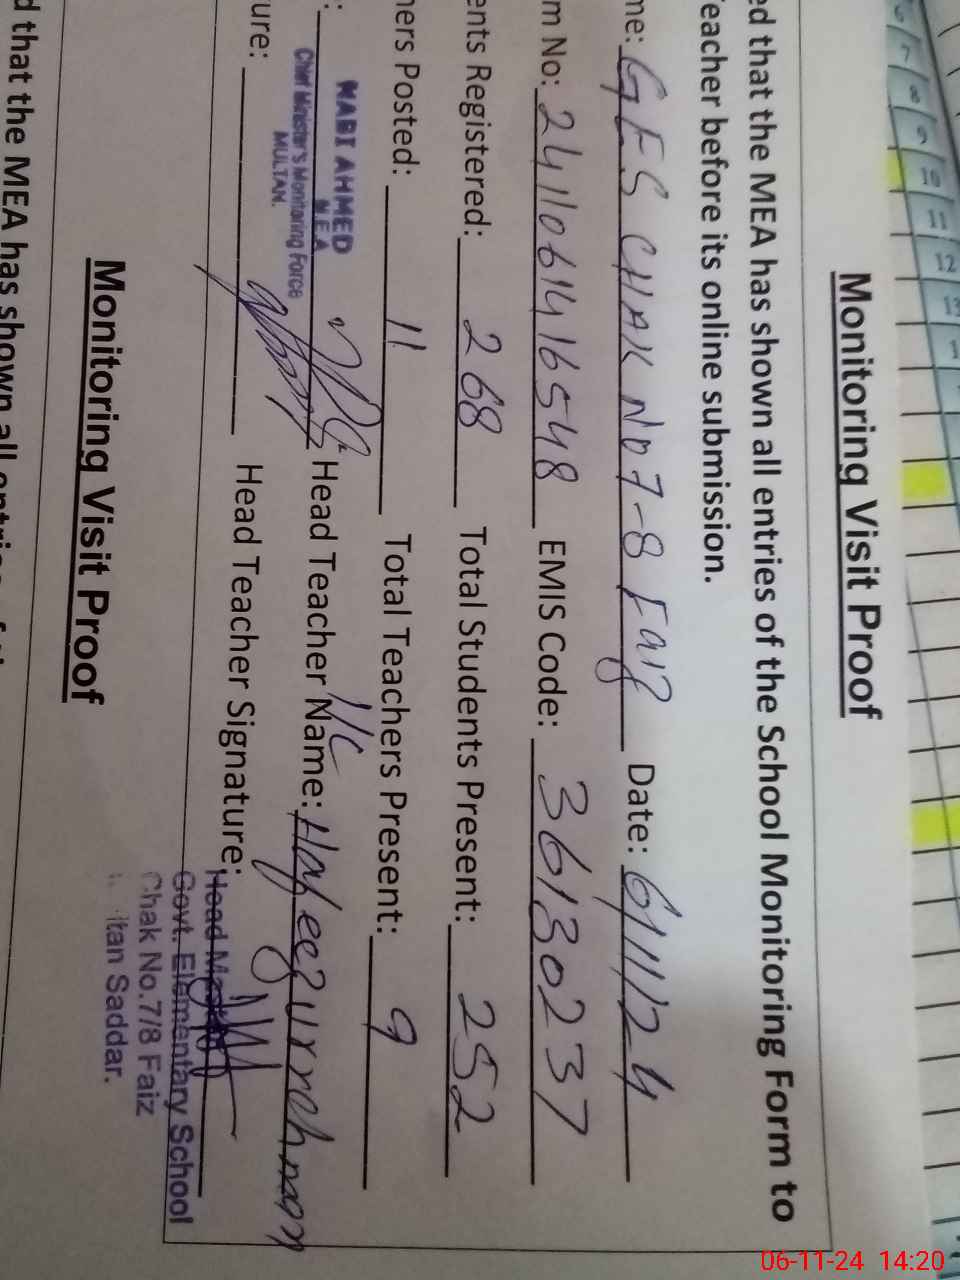 6 7 8 9 10 11 12 13
Monitoring Visit Proof
ed that the MEA has shown all entries of the School Monitoring Form to
eacher before its online submission.
me: GES CHAK No 7-8 Faiz Date: 6/11/24
m No: 2411061416548 EMIS Code: 36130237
ents Registered: 268 Total Students Present: 252
hers Posted: 11 Total Teachers Present: 9
: NABI AHMED Head Teacher Name: I/C Hafeez ur rehman
M E A
Chief Minister's Monitoring Force
MULTAN.
ure: Head Teacher Signature:
Head
Govt. Elementary School
Chak No.7/8 Faiz
ltan Saddar.
Monitoring Visit Proof
d that the MEA has shown all entries of
06-11-24 14:20